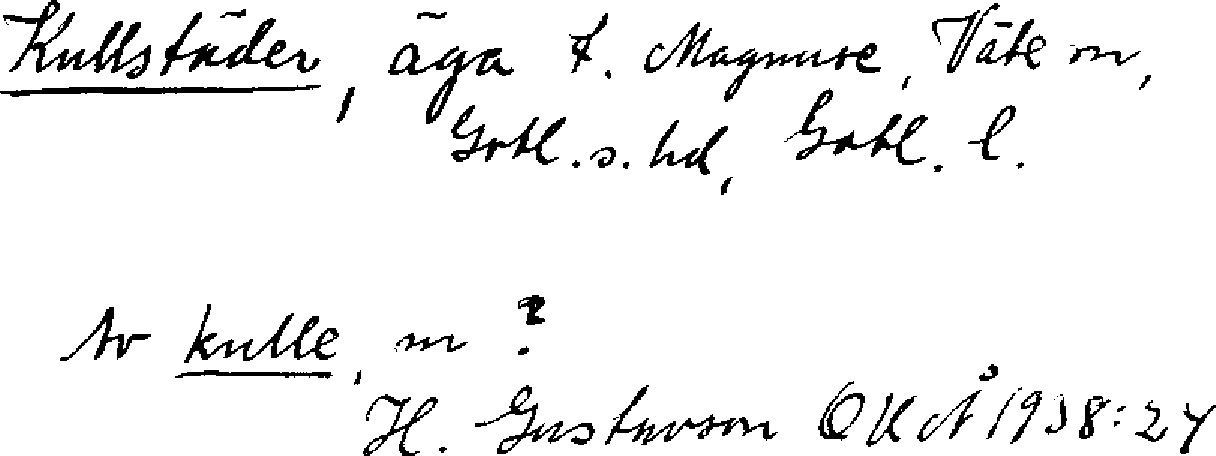 Kullstäder, äga t. Magnuse, Väte sn,
Gotl. s. hd, Gotl. l.
Av kulle, m?
H. Gustavson OUÅ 1938:24